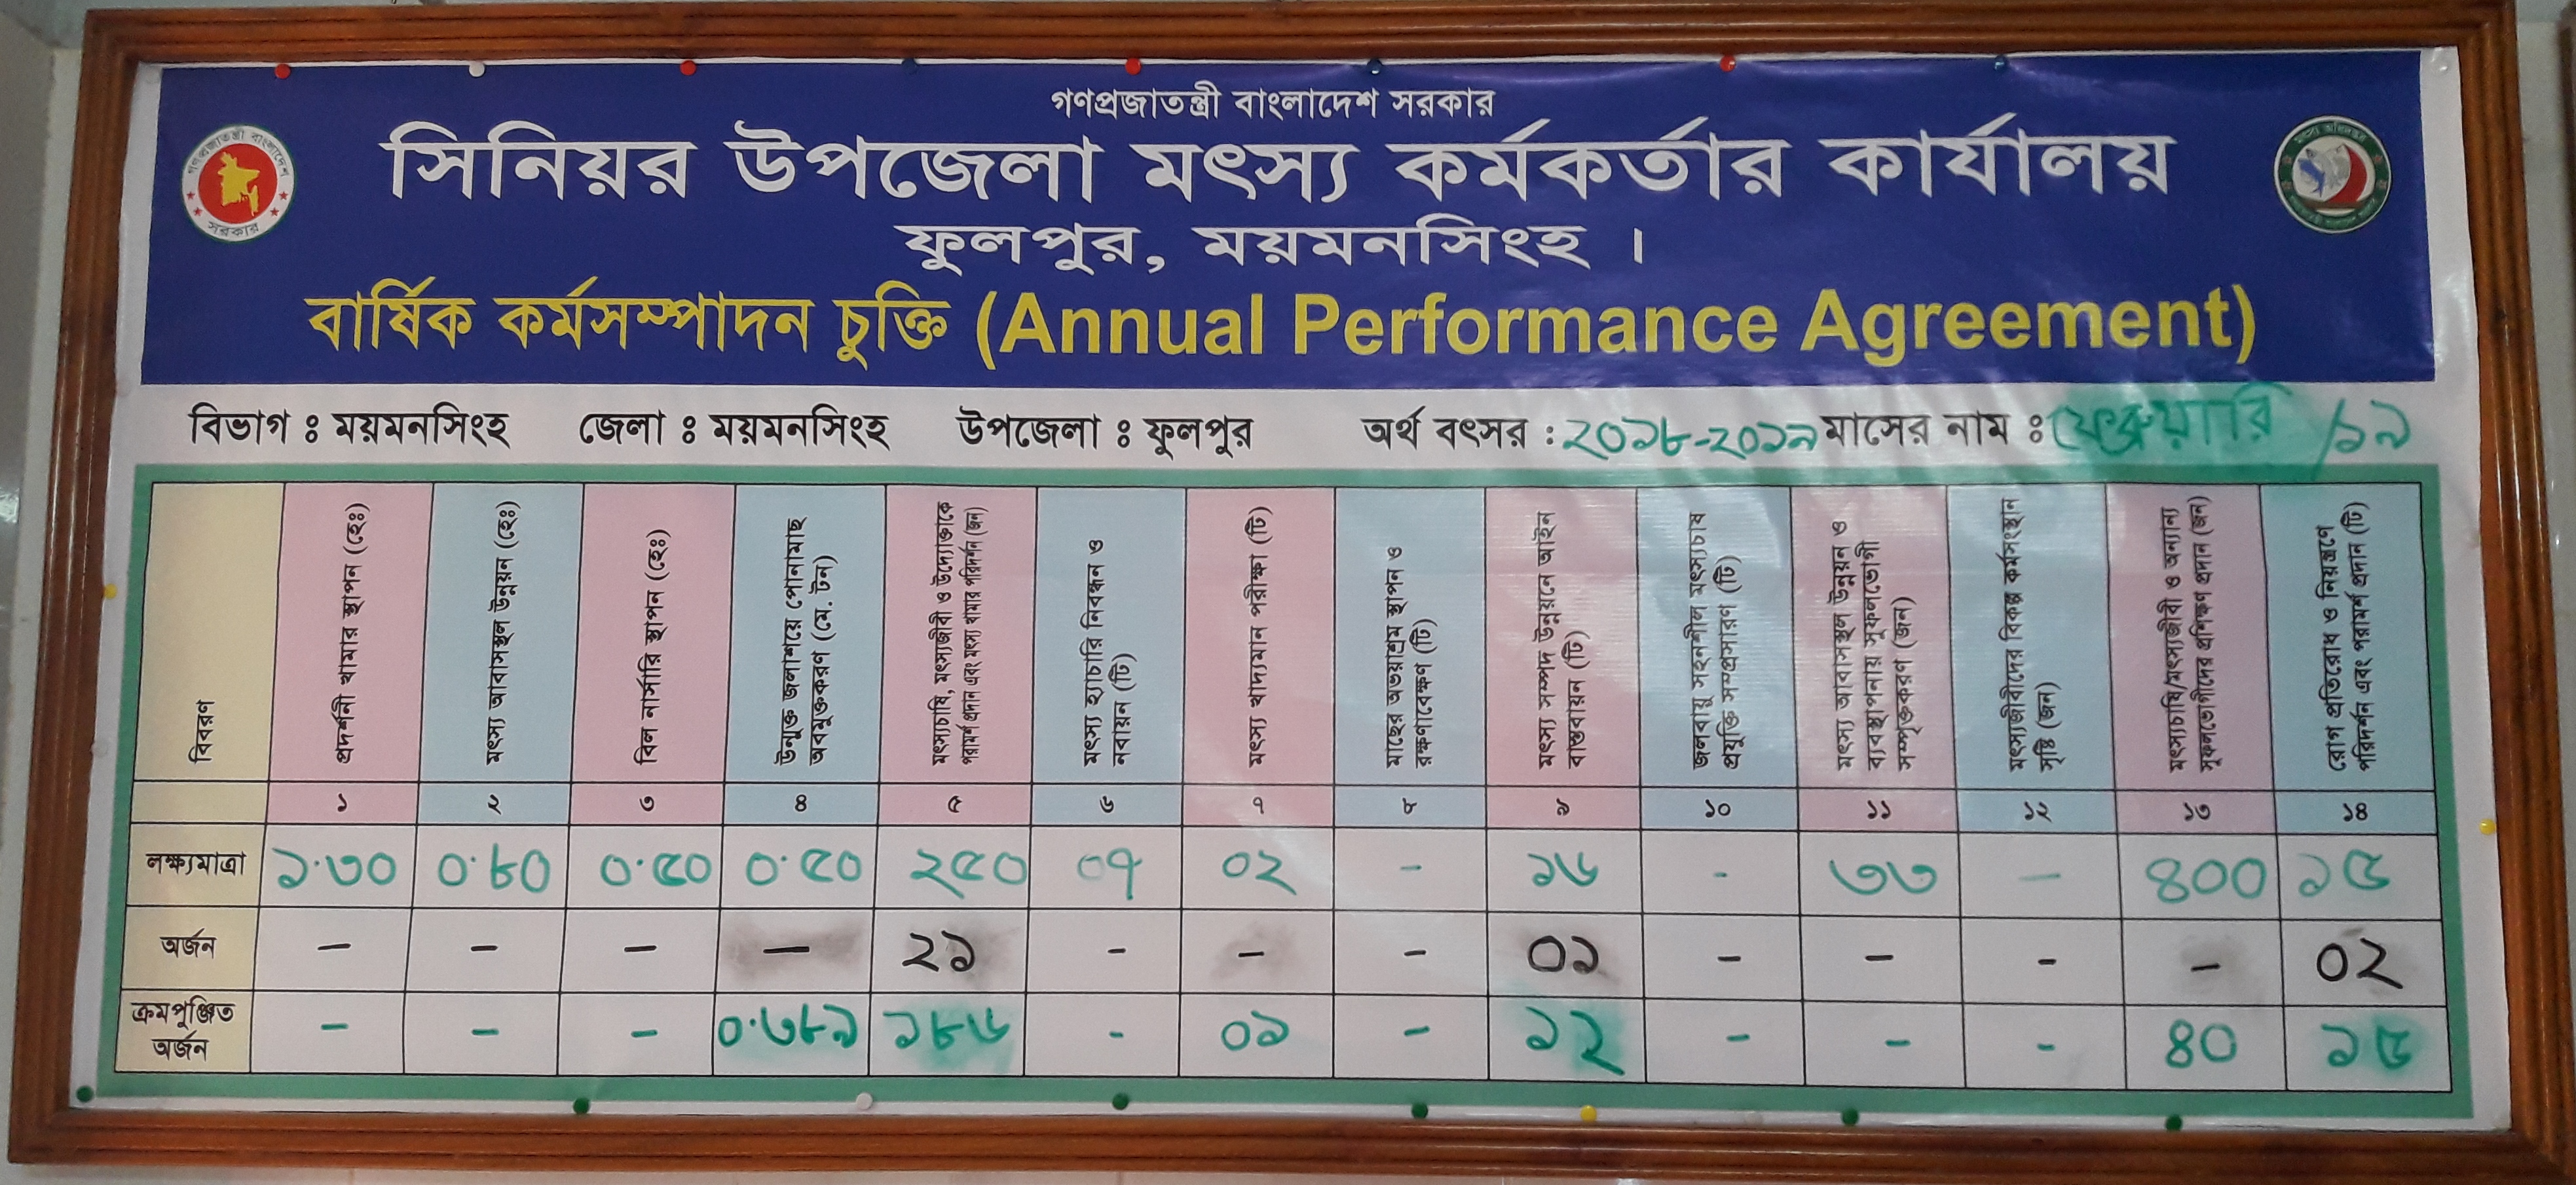 গণপ্রজাতন্ত্রী বাংলাদেশ সরকার
সিনিয়র উপজেলা মৎস্য কর্মকর্তার কার্যালয়
ফুলপুর, ময়মনসিংহ ।
বার্ষিক কর্মসম্পাদন চুক্তি (Annual Performance Agreement)
গণপ্রজাতন্ত্রী বাংলাদেশ
সরকার
মৎস্য অধিদপ্তর
বিভাগ ঃ ময়মনসিংহ জেলা ঃ ময়মনসিংহ উপজেলা ঃ ফুলপুর অর্থ বৎসর : ২০১৮-২০১৯ মাসের নাম ঃ ফেব্রুয়ারি /১৯
বিবরণ
প্রদর্শনী খামার স্থাপন (হেঃ)
মৎস্য আবাসস্থল উন্নয়ন (হেঃ)
বিল নার্সারি স্থাপন (হেঃ)
উন্মুক্ত জলাশয়ে পোনামাছ
অবমুক্তকরণ (মে. টন)
মৎস্যচাষি, মৎস্যজীবী ও উদ্যোক্তাকে
পরামর্শ প্রদান এবং মৎস্য খামার পরিদর্শন (জন)
মৎস্য হ্যাচারি নিবন্ধন ও
নবায়ন (টি)
মৎস্য খাদ্যমান পরীক্ষা (টি)
মাছের অভয়াশ্রম স্থাপন ও
রক্ষণাবেক্ষণ (টি)
মৎস্য সম্পদ উন্নয়নে আইন
বাস্তবায়ন (টি)
জলবায়ু সহনশীল মৎস্যচাষ
প্রযুক্তি সম্প্রসারণ (টি)
মৎস্য আবাসস্থল উন্নয়ন ও
ব্যবস্থাপনায় সুফলভোগী
সম্পৃক্তকরণ (জন)
মৎস্যজীবীদের বিকল্প কর্মসংস্থান
সৃষ্টি (জন)
মৎস্যচাষি/মৎস্যজীবী ও অন্যান্য
সুফলভোগীদের প্রশিক্ষণ প্রদান (জন)
রোগ প্রতিরোধ ও নিয়ন্ত্রণে
পরিদর্শন এবং পরামর্শ প্রদান (টি)
১ ২ ৩ ৪ ৫ ৬ ৭ ৮ ৯ ১০ ১১ ১২ ১৩ ১৪
লক্ষ্যমাত্রা ১.৩০ ০.৮০ ০.৫০ ০.৫০ ২৫০ ০৭ ০২ - ১৬ - ৩৩ - ৪০০ ১৫
অর্জন - - - - ২১ - - - ০১ - - - - ০২
ক্রমপুঞ্জিত
অর্জন - - - ০.৩৮৯ ১৮৬ - ০১ - ১২ - - - ৪০ ১৫